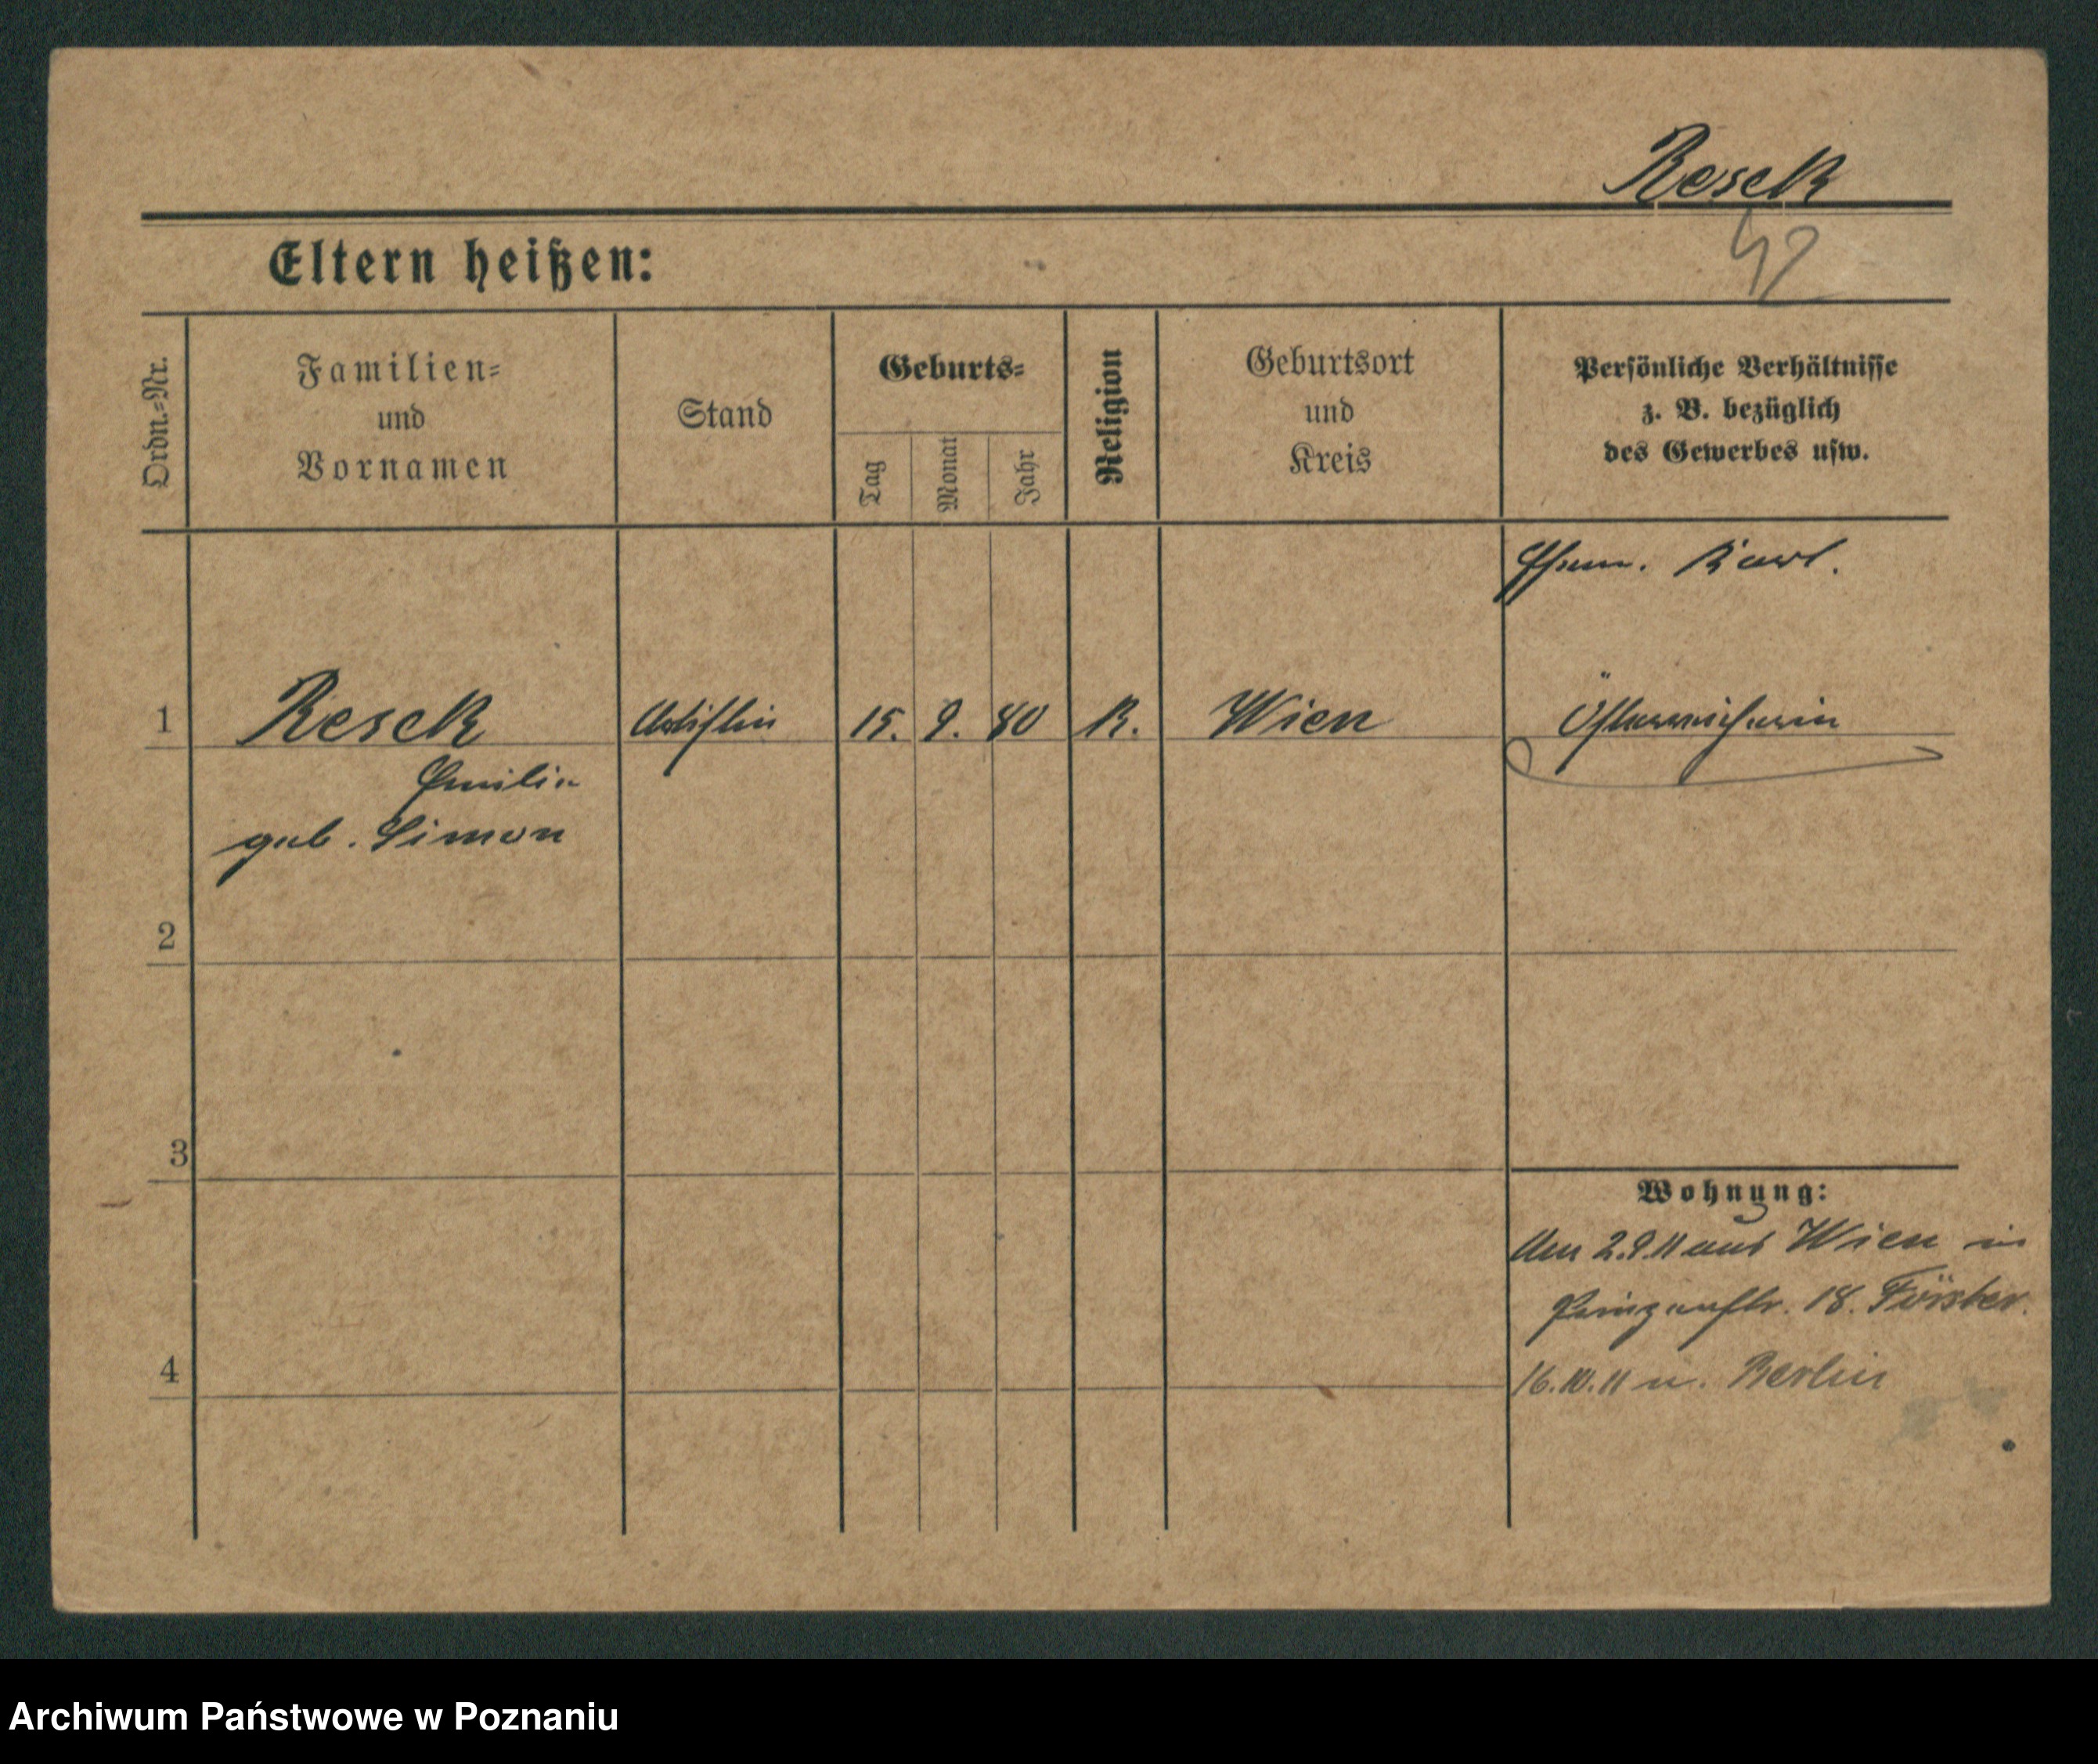 Resek
42
Eltern heißen:
Ordn.-Nr.
Familien-
und
Vornamen
Stand
Geburts-
Tag
Monat
Jahr
Religion
Geburtsort
und
Kreis
Persönliche Verhältnisse
z. B. bezüglich
des Gewerbes usw.
Ehem. Karl.
1 Resek Artistin 15. 9. 80 K. Wien Österreicherin
Emilie
geb. Simon
2
3
4
Wohnung:
Am 2.9.11 aus Wien in
Prinzenstr. 18. Förster.
16.10.11 n. Berlin
Archiwum Państwowe w Poznaniu